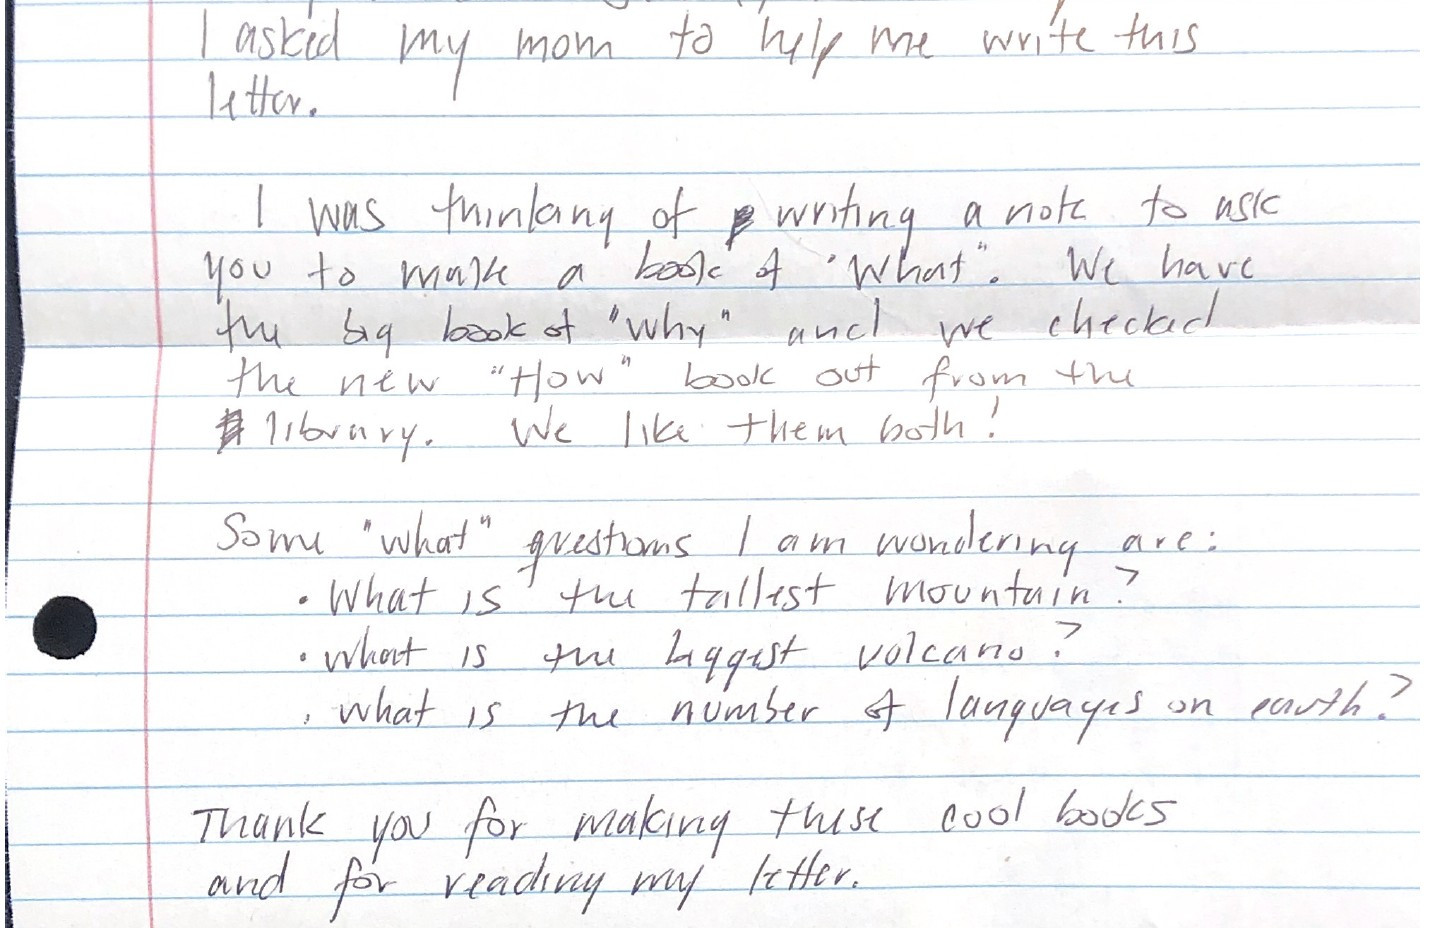 I asked my mom to help me write this
letter.
I was thinking of writing a note to ask
you to make a book of "What". We have
the big book of "why" and we checked
the new "How" book out from the
library. We like them both!
Some "what" questions I am wondering are:
• What is the tallest mountain?
• what is the biggest volcano?
• what is the number of languages on earth?
Thank you for making these cool books
and for reading my letter.